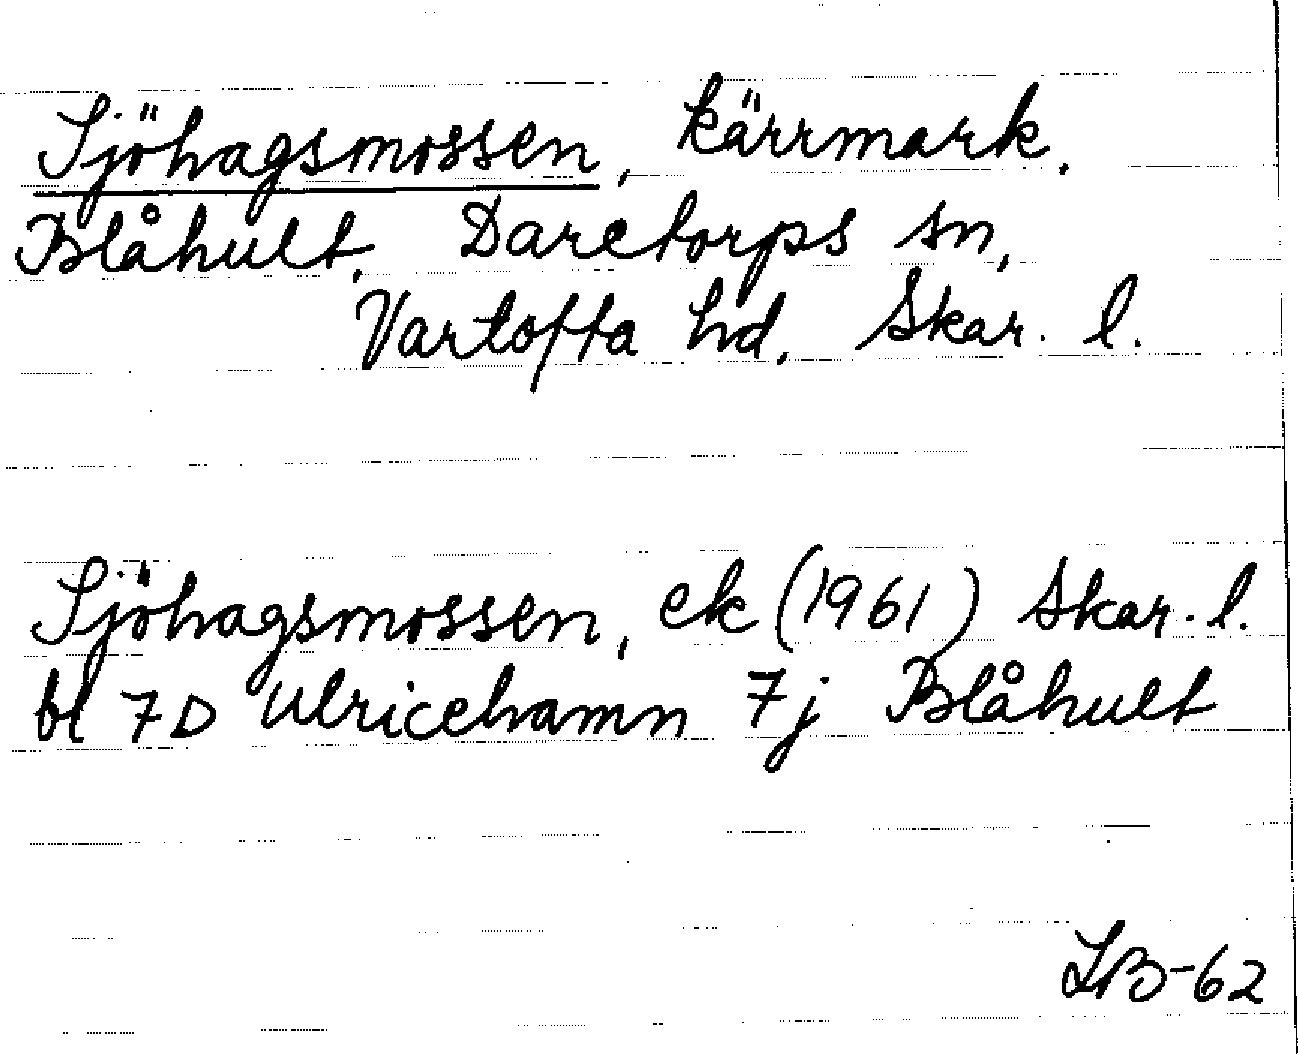 Sjöhagsmossen, kärrmark.
Blåhult, Daretorps sn,
Vartofta hd, Skar. l.
Sjöhagsmossen, ek (1961) Skar. l.
bl 7D Ulricehamn 7j Blåhult
LB-62